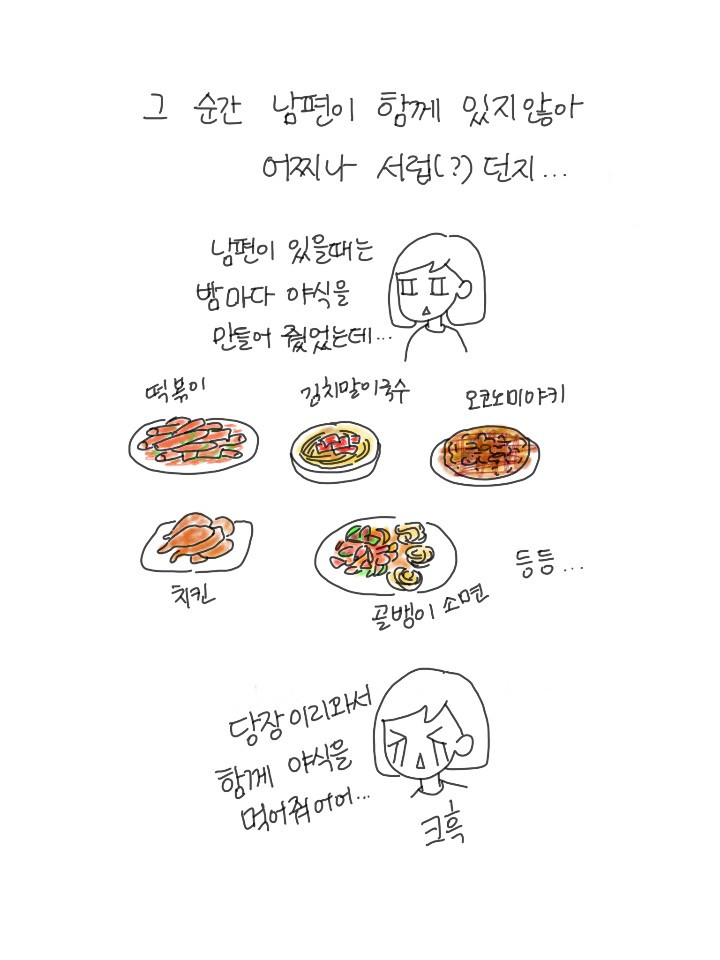 그 순간 남편이 함께 있지않아
어찌나 서럽(?)던지...
남편이 있을때는
밤마다 야식을
만들어 줬었는데...
떡볶이
김치말이국수
오코노미야키
치킨
골뱅이 소면
등등...
당장이리와서
함께 야식을
먹어줘어어...
크흑